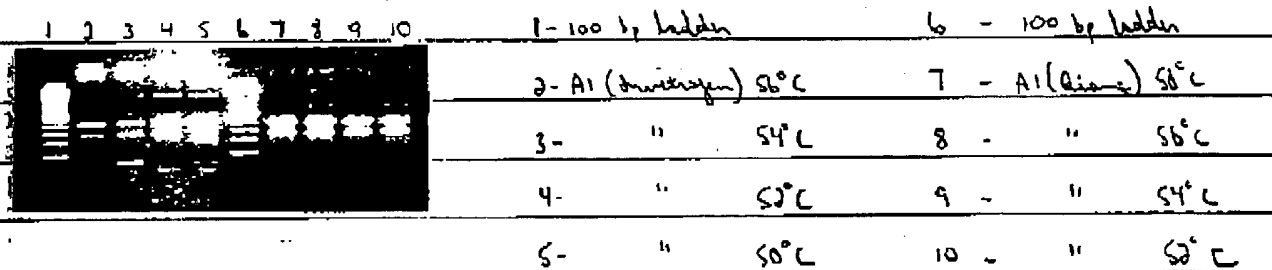 1 2 3 4 5 6 7 8 9 10
1- 100 bp ladder
2- A1 (Invitrogen) 56°C
3- " 54°C
4- " 52°C
5- " 50°C
6 - 100 bp ladder
7 - A1 (Qiagen) 58°C
8 - " 56°C
9 - " 54°C
10 - " 52°C